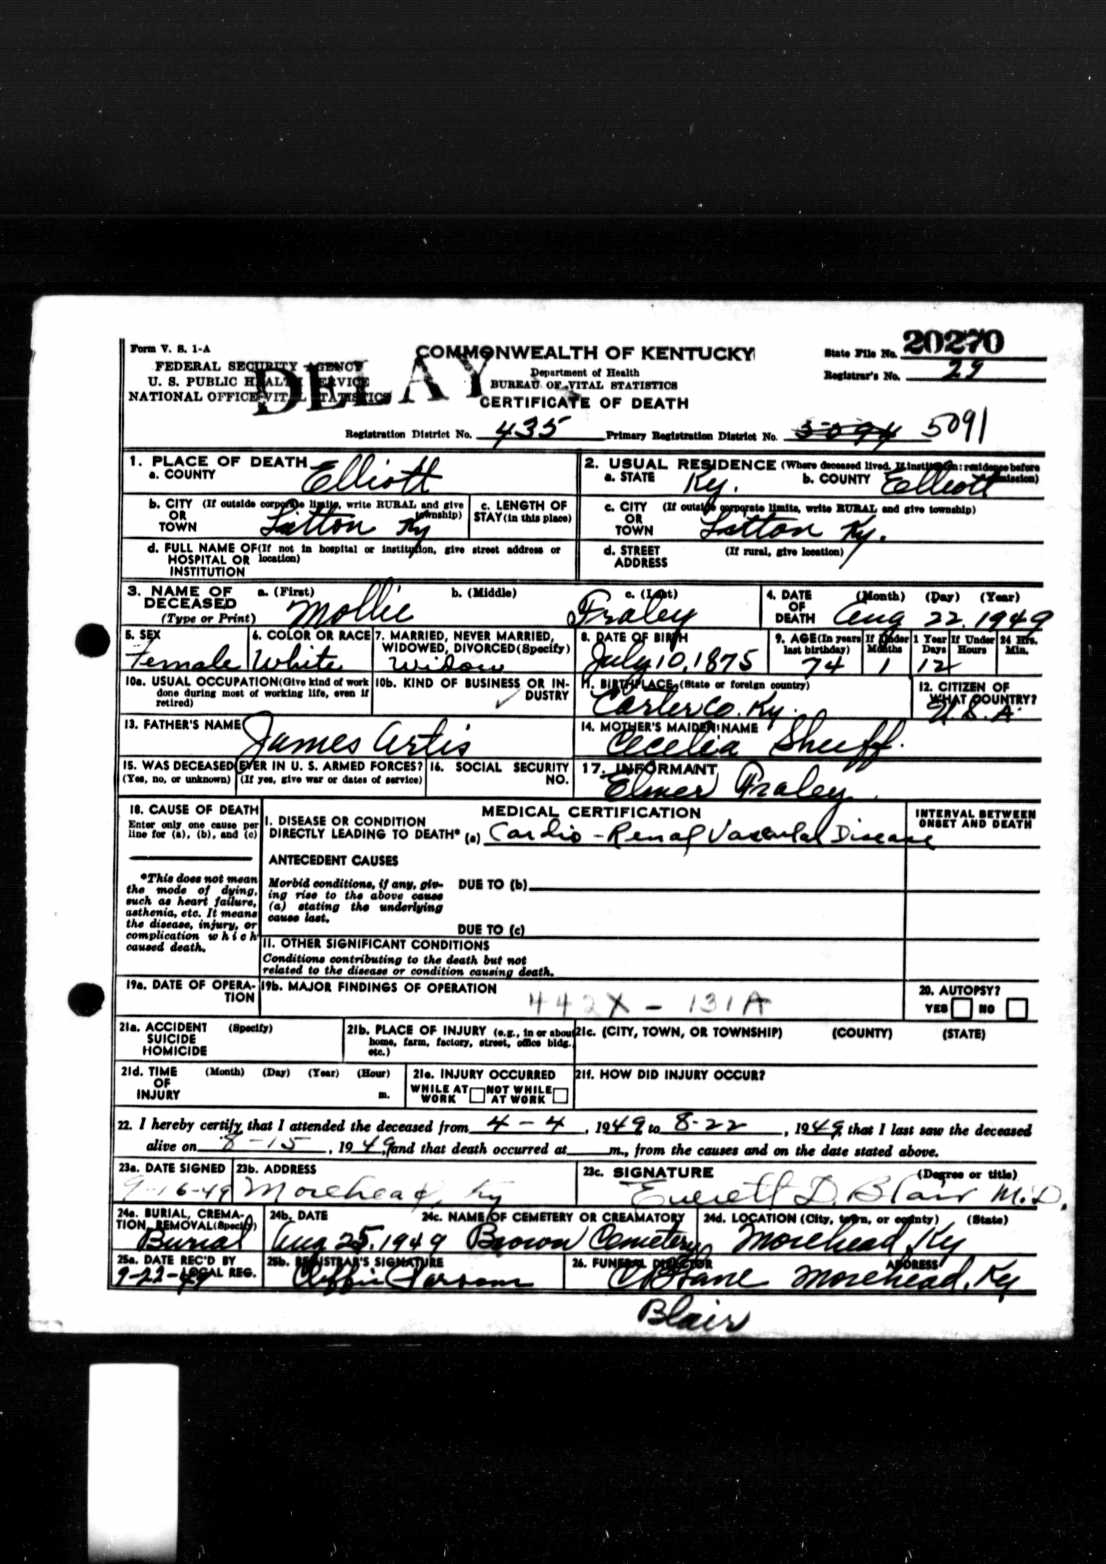 Form V. S. 1-A
COMMONWEALTH OF KENTUCKY
State File No. 20270
FEDERAL SECURITY AGENCY
U. S. PUBLIC HEALTH SERVICE
NATIONAL OFFICE VITAL STATISTICS
DELAY
Department of Health
BUREAU OF VITAL STATISTICS
CERTIFICATE OF DEATH
Registrar's No. 29
Registration District No. 435 Primary Registration District No. 5094 5091
1. PLACE OF DEATH
a. COUNTY Elliott
2. USUAL RESIDENCE (Where deceased lived. If institution: residence before admission)
a. STATE Ky. b. COUNTY Elliott
b. CITY OR TOWN (If outside corporate limits, write RURAL and give township) Litton Ky
c. LENGTH OF STAY (in this place)
c. CITY OR TOWN (If outside corporate limits, write RURAL and give township) Litton Ky.
d. FULL NAME OF HOSPITAL OR INSTITUTION (If not in hospital or institution, give street address or location)
d. STREET ADDRESS (If rural, give location)
3. NAME OF DECEASED (Type or Print)
a. (First) Mollie b. (Middle) c. (Last) Fraley
4. DATE OF DEATH (Month) (Day) (Year) Aug 22, 1949
5. SEX Female
6. COLOR OR RACE White
7. MARRIED, NEVER MARRIED, WIDOWED, DIVORCED (Specify) Widow
8. DATE OF BIRTH July 10, 1875
9. AGE (In years last birthday) 74 If Under 1 Year Months 1 Days 12 If Under 24 Hrs. Hours Min.
10a. USUAL OCCUPATION (Give kind of work done during most of working life, even if retired)
10b. KIND OF BUSINESS OR INDUSTRY
11. BIRTHPLACE (State or foreign country) Carter Co. Ky.
12. CITIZEN OF WHAT COUNTRY? U.S.A.
13. FATHER'S NAME James Artis
14. MOTHER'S MAIDEN NAME Cecelia Shuff.
15. WAS DECEASED EVER IN U. S. ARMED FORCES?
(Yes, no, or unknown) (If yes, give war or dates of service)
16. SOCIAL SECURITY NO.
17. INFORMANT Elmer Fraley.
18. CAUSE OF DEATH
Enter only one cause per line for (a), (b), and (c)
*This does not mean the mode of dying, such as heart failure, asthenia, etc. It means the disease, injury, or complication which caused death.
MEDICAL CERTIFICATION
INTERVAL BETWEEN ONSET AND DEATH
I. DISEASE OR CONDITION DIRECTLY LEADING TO DEATH* (a) Cardio-Renal Vascular Disease
ANTECEDENT CAUSES
Morbid conditions, if any, giving rise to the above cause (a) stating the underlying cause last.
DUE TO (b)
DUE TO (c)
II. OTHER SIGNIFICANT CONDITIONS
Conditions contributing to the death but not related to the disease or condition causing death.
19a. DATE OF OPERATION
19b. MAJOR FINDINGS OF OPERATION
442X - 131A
20. AUTOPSY?
YES NO
21a. ACCIDENT SUICIDE HOMICIDE (Specify)
21b. PLACE OF INJURY (e.g., in or about home, farm, factory, street, office bldg. etc.)
21c. (CITY, TOWN, OR TOWNSHIP) (COUNTY) (STATE)
21d. TIME OF INJURY (Month) (Day) (Year) (Hour) m.
21e. INJURY OCCURRED
WHILE AT WORK NOT WHILE AT WORK
21f. HOW DID INJURY OCCUR?
22. I hereby certify that I attended the deceased from 4-4, 1949 to 8-22, 1949, that I last saw the deceased
alive on 8-15, 1949, and that death occurred at m., from the causes and on the date stated above.
23a. DATE SIGNED 9-16-49
23b. ADDRESS Morehead, Ky
23c. SIGNATURE (Degree or title) Everett D. Blair M.D.
24a. BURIAL, CREMATION, REMOVAL (Specify) Burial
24b. DATE Aug 25, 1949
24c. NAME OF CEMETERY OR CREAMATORY Brown Cemetery
24d. LOCATION (City, town, or county) (State) Morehead, Ky
25a. DATE REC'D BY LOCAL REG. 9-22-49
25b. REGISTRAR'S SIGNATURE
26. FUNERAL DIRECTOR Lane ADDRESS Morehead, Ky
Blair